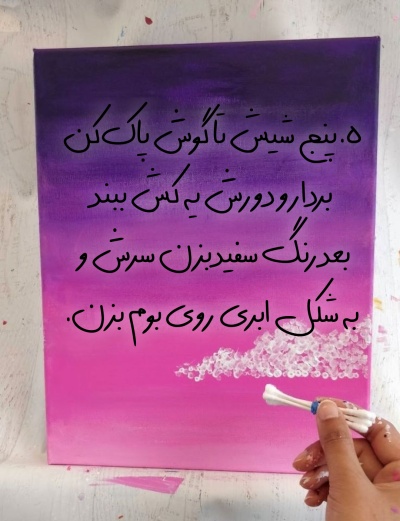 ۵.پنج شیش تا گوش پاک کن
بردار و دورش یه کش ببند
بعد رنگ سفید بزن سرش و
به شکل ابری روی بوم بزن.